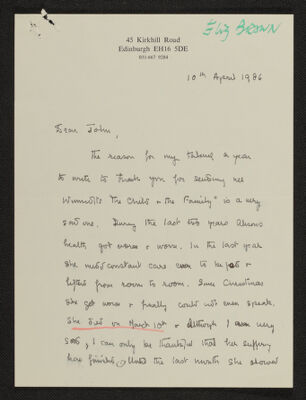 Eliz BROWN
45 Kirkhill Road
Edinburgh EH16 5DE
031-667 9284
10th April 1986
Dear John,
The reason for my taking a year
to write to thank you for sending me
Winnicott's The Child & the Family" is a very
sad one. During the last two years
health got worse & worse. In the last year
she needed constant care to be &
lifted from room to room. Since Christmas
she got worse & finally could not even speak.
She died on March 10th & although I am very
sad, I can only be thankful that her suffering
has finished. Until the last month she showed